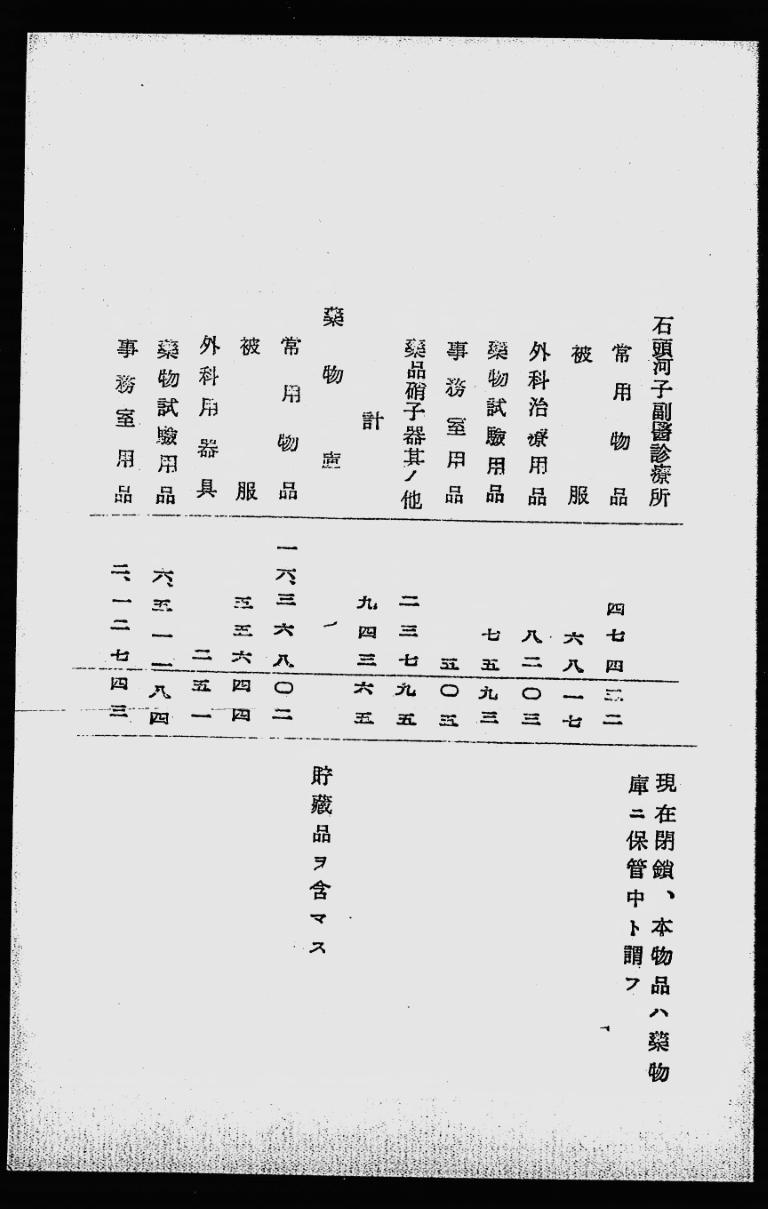 石頭河子副醫診療所 現在閉鎖、本物品ハ藥物
庫ニ保管中ト謂フ
常用物品 四七四五二
被服 六八一七
外科治療用品 八二〇三
藥物試驗用品 七五九三
事務室用品 五〇五
藥品硝子器其ノ他 二三七九五
計 九四三六五
藥物庫 貯藏品ヲ含マス
常用物品 一六、三六八〇二
被服 五五六四四
外科用器具 二五一
藥物試驗用品 六、五一一八四
事務室用品 二、一二七四三